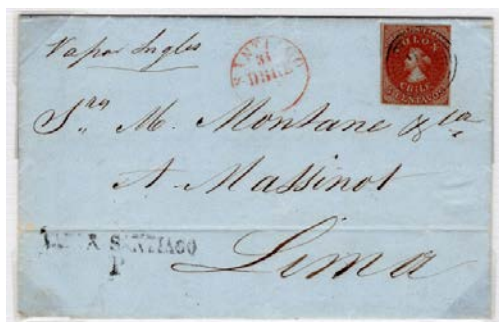 Vapor Ingles
SANTIAGO
31
DBRE
COLON
CHILE
CENTAVOS
Srs M. Montane & Cia
A. Massinot
SANTIAGO
P
Lima